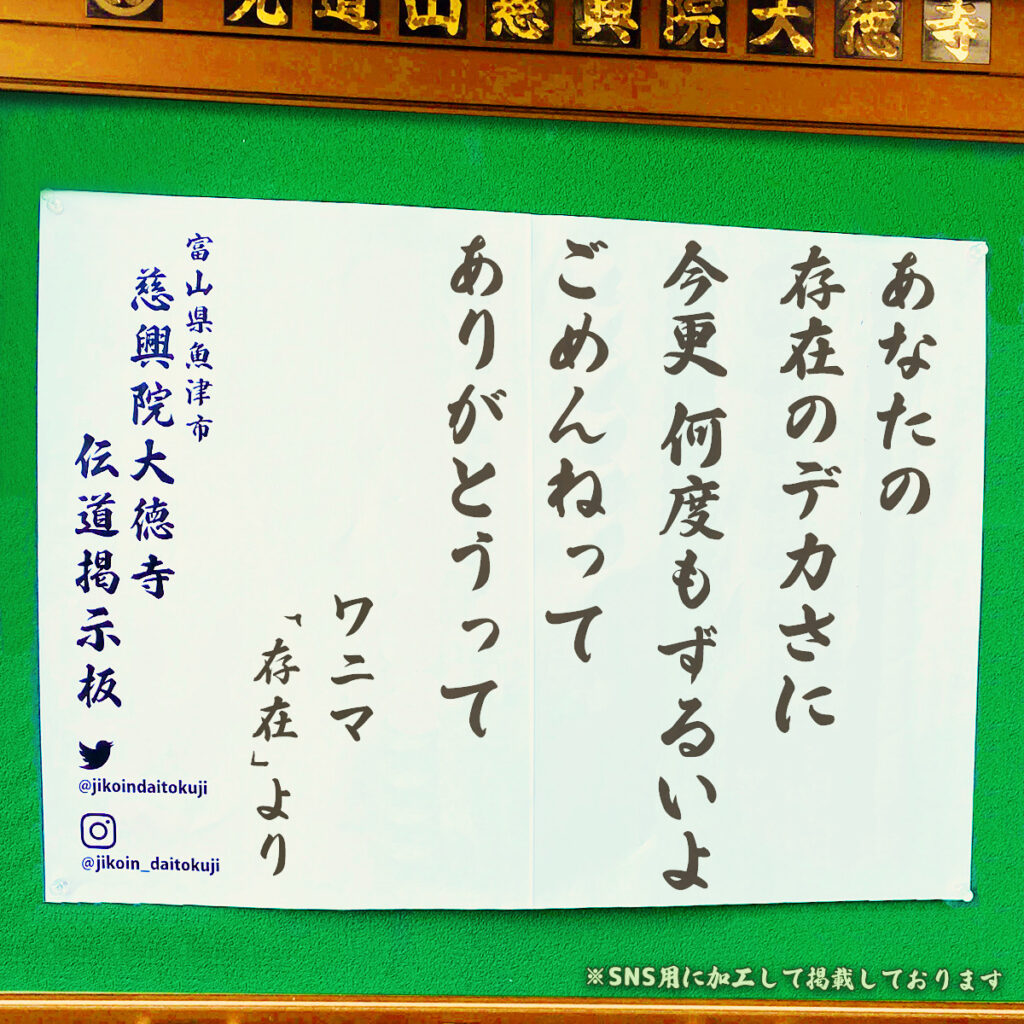 光道山慈興院大徳寺
あなたの
存在のデカさに
今更 何度もずるいよ
ごめんねって
ありがとうって
ワニマ
「存在」より
富山県魚津市
慈興院大徳寺
伝道掲示板
@jikoindaitokuji
@jikoin_daitokuji
※SNS用に加工して掲載しております